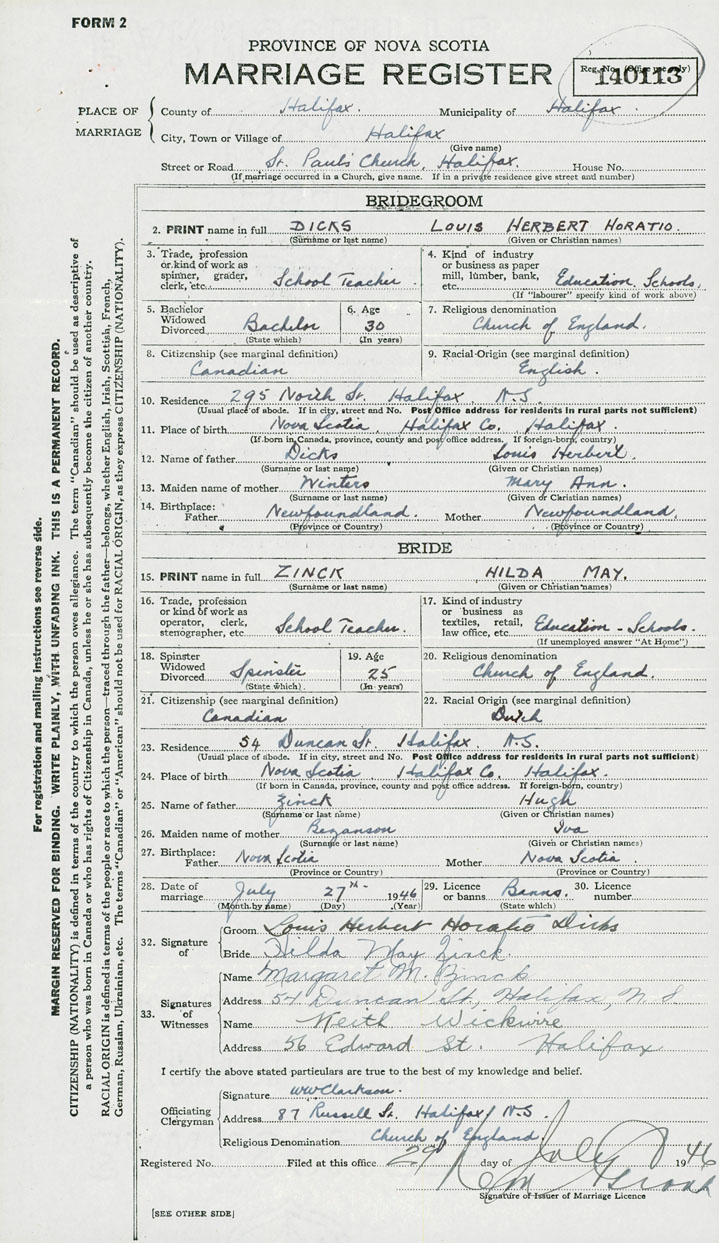 FORM 2
PROVINCE OF NOVA SCOTIA
MARRIAGE REGISTER
Reg. No. (Office use only)
140113
PLACE OF MARRIAGE
County of Halifax. Municipality of Halifax.
City, Town or Village of Halifax
(Give name)
Street or Road St. Paul's Church, Halifax. House No.
(If marriage occurred in a Church, give name. If in a private residence give street and number)
BRIDEGROOM
2. PRINT name in full DICKS LOUIS HERBERT HORATIO.
(Surname or last name) (Given or Christian names)
3. Trade, profession or kind of work as spinner, grader, clerk, etc. School Teacher.
4. Kind of industry or business as paper mill, lumber, bank, etc. Education, Schools.
(If "labourer" specify kind of work above)
5. Bachelor Widowed Divorced Bachelor
(State which)
6. Age 30
(In years)
7. Religious denomination
Church of England.
8. Citizenship (see marginal definition)
Canadian
9. Racial Origin (see marginal definition)
English.
10. Residence 295 North St. Halifax N.S.
(Usual place of abode. If in city, street and No. Post Office address for residents in rural parts not sufficient)
11. Place of birth Nova Scotia, Halifax Co. Halifax.
(If born in Canada, province, county and post office address. If foreign-born, country)
12. Name of father Dicks Louis Herbert.
(Surname or last name) (Given or Christian names)
13. Maiden name of mother Winters Mary Ann.
(Surname or last name) (Given or Christian names)
14. Birthplace: Father Newfoundland. Mother Newfoundland.
(Province or Country) (Province or Country)
BRIDE
15. PRINT name in full ZINCK HILDA MAY.
(Surname or last name) (Given or Christian names)
16. Trade, profession or kind of work as operator, clerk, stenographer, etc. School Teacher.
17. Kind of industry or business as textiles, retail, law office, etc. Education - Schools.
(If unemployed answer "At Home")
18. Spinster Widowed Divorced Spinster
(State which)
19. Age 25
(In years)
20. Religious denomination
Church of England.
21. Citizenship (see marginal definition)
Canadian
22. Racial Origin (see marginal definition)
Dutch
23. Residence 54 Duncan St. Halifax N.S.
(Usual place of abode. If in city, street and No. Post Office address for residents in rural parts not sufficient)
24. Place of birth Nova Scotia, Halifax Co. Halifax.
(If born in Canada, province, county and post office address. If foreign-born, country)
25. Name of father Zinck Hugh
(Surname or last name) (Given or Christian names)
26. Maiden name of mother Bezanson Iva
(Surname or last name) (Given or Christian names)
27. Birthplace: Father Nova Scotia Mother Nova Scotia.
(Province or Country) (Province or Country)
28. Date of marriage July 27th 1946
(Month by name) (Day) (Year)
29. Licence or banns Banns.
(State which)
30. Licence number
32. Signature of
Groom Louis Herbert Horatio Dicks
Bride Hilda May Zinck.
33. Signatures of Witnesses
Name Margaret M. Zinck
Address 54 Duncan St., Halifax, N.S.
Name Keith Wickwire
Address 56 Edward St. Halifax
I certify the above stated particulars are true to the best of my knowledge and belief.
Officiating Clergyman
Signature WWClarkson.
Address 87 Russell St. Halifax, N.S.
Religious Denomination Church of England.
Registered No. Filed at this office 29 day of July 1946
Signature of Issuer of Marriage Licence
[SEE OTHER SIDE]
For registration and mailing instructions see reverse side.
MARGIN RESERVED FOR BINDING. WRITE PLAINLY, WITH UNFADING INK. THIS IS A PERMANENT RECORD.
CITIZENSHIP (NATIONALITY) is defined in terms of the country to which the person owes allegiance. The term "Canadian" should be used as descriptive of
a person who was born in Canada or who has rights of Citizenship in Canada, unless he or she has subsequently become the citizen of another country.
RACIAL ORIGIN is defined in terms of the people or race to which the person—traced through the father—belongs, whether English, Irish, Scottish, French,
German, Russian, Ukrainian, etc. The terms "Canadian" or "American" should not be used for RACIAL ORIGIN, as they express CITIZENSHIP (NATIONALITY).